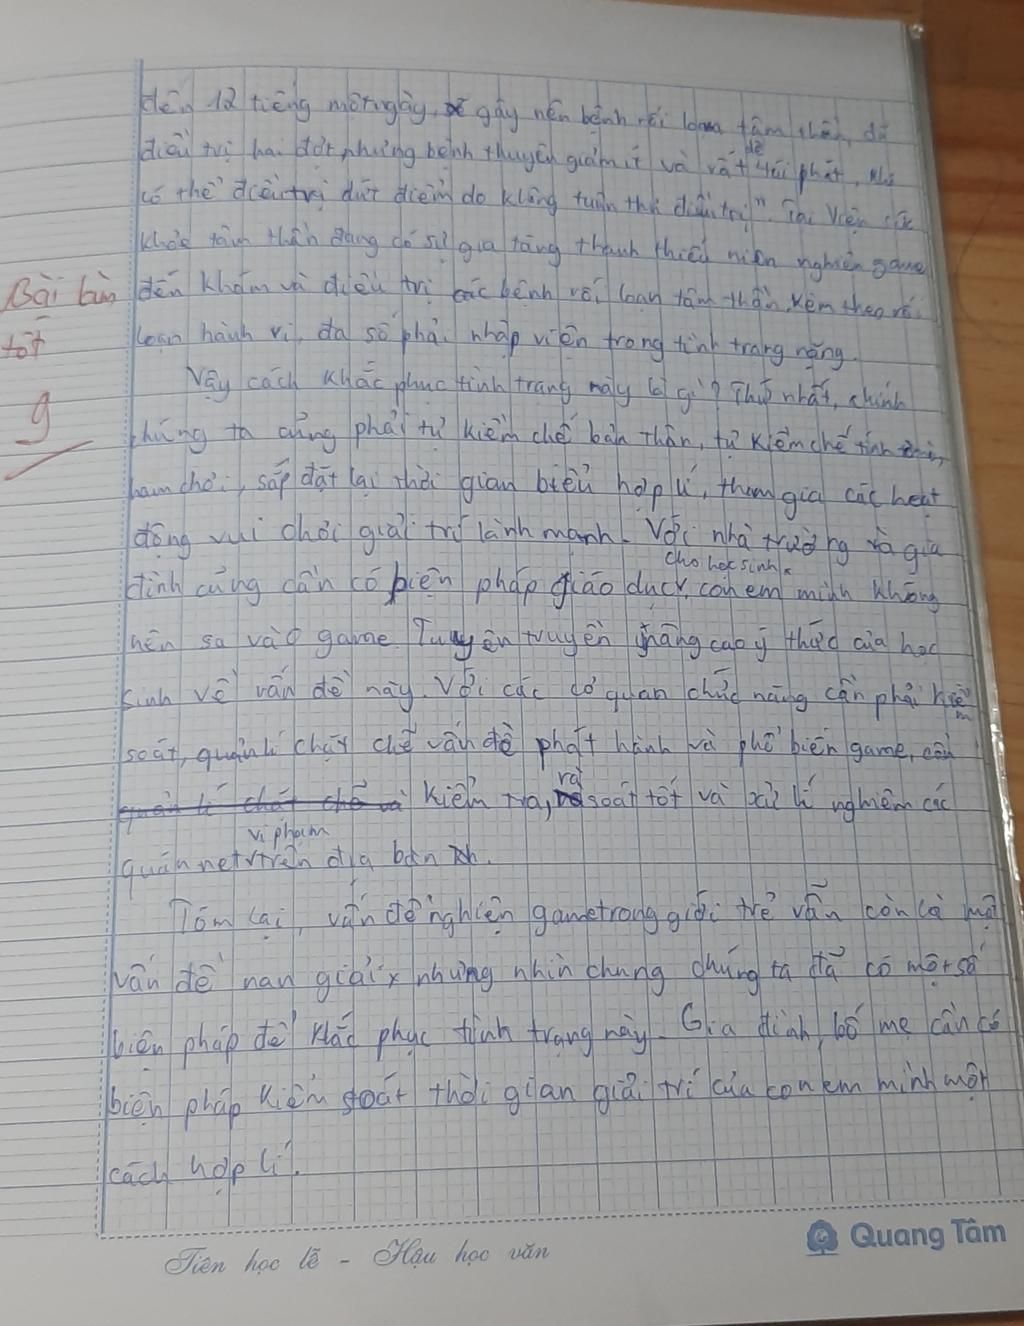 đến 12 tiếng một ngày, gây nên bệnh rối loạn tâm thần, đã
điều trị hai đợt nhưng bệnh thuyên giảm ít và rất dễ tái phát,
có thể điều trị dứt điểm do không tuân thủ điều trị". Tại Viện sức
khỏe tâm thần đang có sự gia tăng thanh thiếu niên nghiện game
đến khám và điều trị các bệnh rối loạn tâm thần, kèm theo rối
loạn hành vi, đa số phải nhập viện trong tình trạng nặng.
Bài làm
tốt
9
Vậy cách khắc phục tình trạng này là gì? Thứ nhất, chính
chúng ta cũng phải tự kiềm chế bản thân, tự kiềm chế tính
ham chơi, sắp đặt lại thời gian biểu hợp lí, tham gia các hoạt
động vui chơi giải trí lành mạnh. Với nhà trường và gia
đình cũng cần có biện pháp giáo dục cho học sinh, con em mình không
nên sa vào game. Tuyên truyền nâng cao ý thức của học
sinh về vấn đề này. Với các cơ quan chức năng cần phải kiểm
soát, quản lí chặt chẽ vấn đề phát hành và phổ biến game, cần
quản lí chặt chẽ và kiểm tra, rà soát tốt và xử lí nghiêm các
quán net vi phạm trên địa bàn.
Tóm lại, vấn đề nghiện game trong giới trẻ vẫn còn là một
vấn đề nan giải, nhưng nhìn chung chúng ta đã có một số
biện pháp để khắc phục tình trạng này. Gia đình, bố mẹ cần có
biện pháp kiểm soát thời gian giải trí của con em mình một
cách hợp lí.
Tiên học lễ - Hậu học văn
Quang Tâm